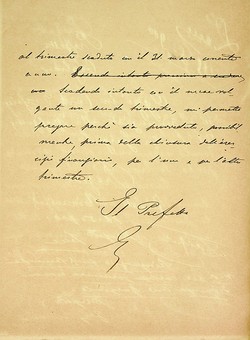 al trimestre scaduto con il 31 marzo corrente
anno.
Scadendo intanto con il mese vol
gente un secondo trimestre, mi permetto
pregare perchè sia provveduto, possibil
mente prima della chiusura dell'eser
cizi finanziario, per l'uno e per l'altro
trimestre.
Il Prefetto